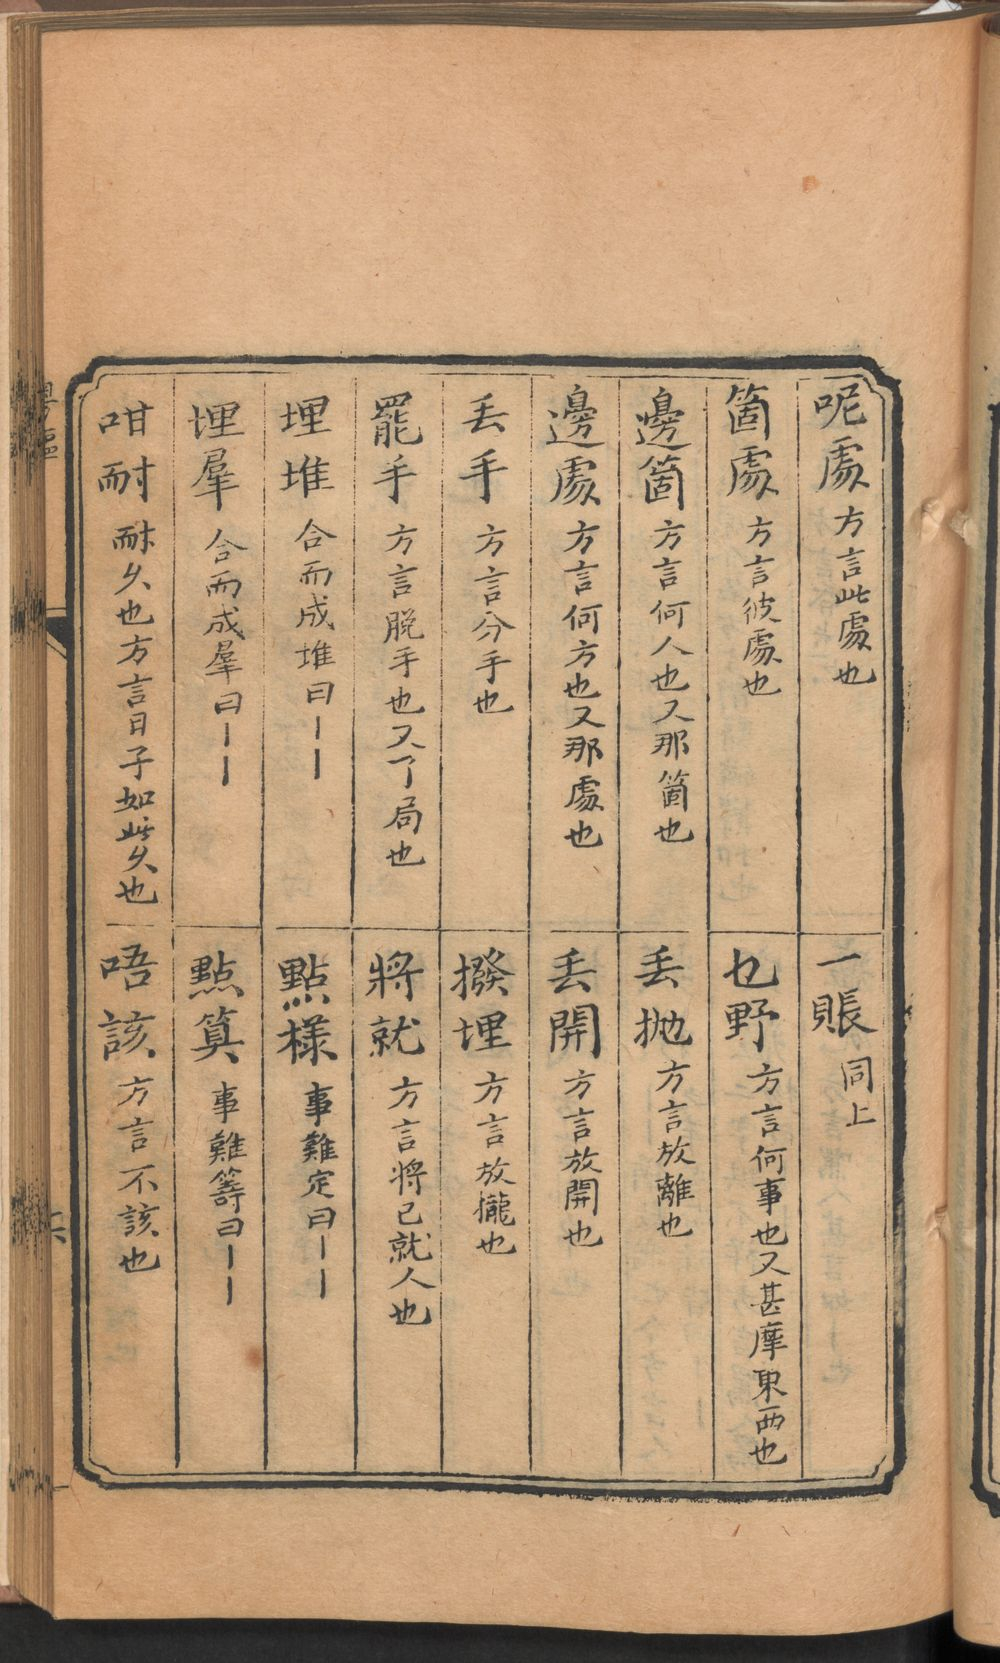 呢處 方言此處也
箇處 方言彼處也
邊箇 方言何人也又那箇也
邊處 方言何方也又那處也
丢手 方言分手也
罷手 方言脫手也又了局也
埋堆 合而成堆曰丨丨
埋羣 合而成羣曰丨丨
咁耐 耐久也方言日子如此久也
一賬 同上
乜野 方言何事也又甚麼東西也
丢抛 方言放離也
丢開 方言放開也
撥埋 方言放攏也
將就 方言將己就人也
點樣 事難定曰丨丨
點算 事難籌曰丨丨
唔該 方言不該也